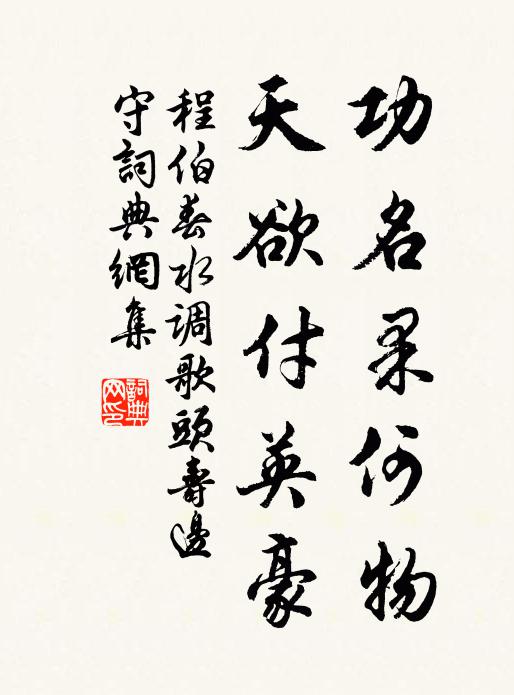 功名果何物
天欲付英豪
程伯春水调歌頭壽邊
守詞典網集
詞典网印